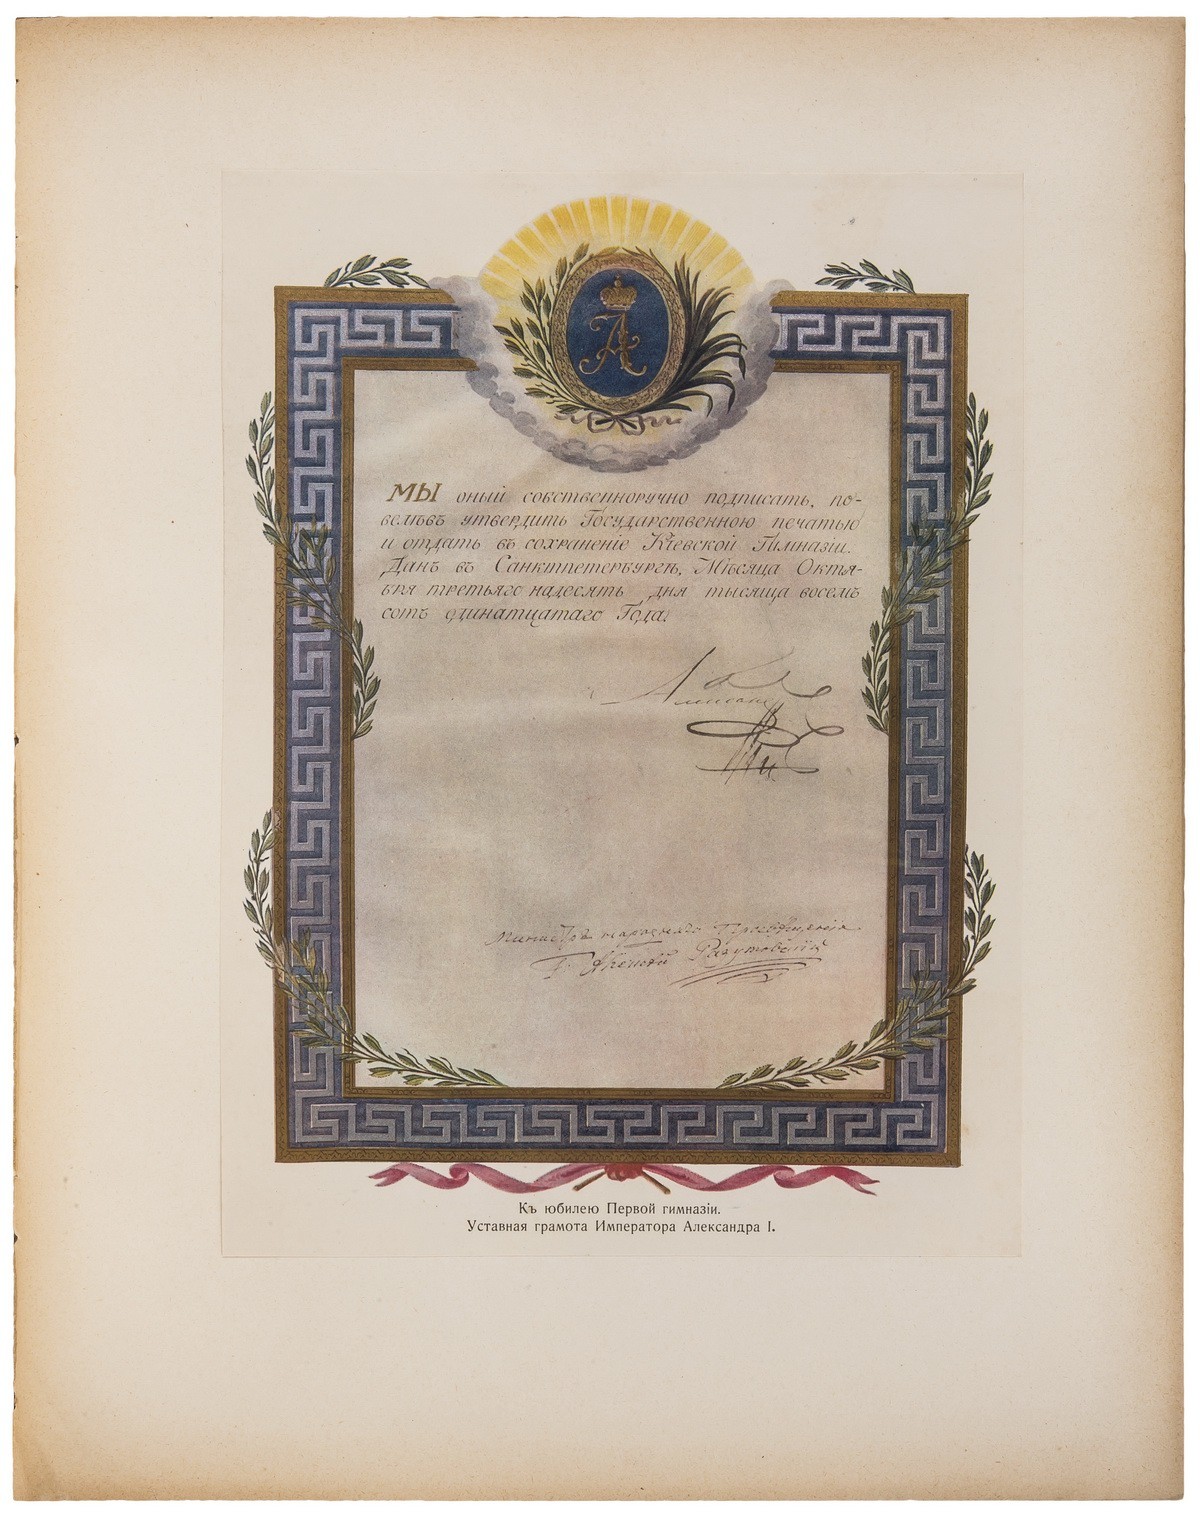 А
МЫ оный собственноручно подписать, по-
велѣвъ утвердить Государственною печатью
и отдать въ сохраненіе Кіевской Гимназіи.
Данъ въ Санктпетербургѣ, Мѣсяца Октя-
бря третьяго надесять дня тысяща восемъ
сотъ одинатцатаго Года.
Александръ
Министръ народнаго Просвѣщенія
Г. Алексѣй Разумовскій
Къ юбилею Первой гимназіи.
Уставная грамота Императора Александра I.